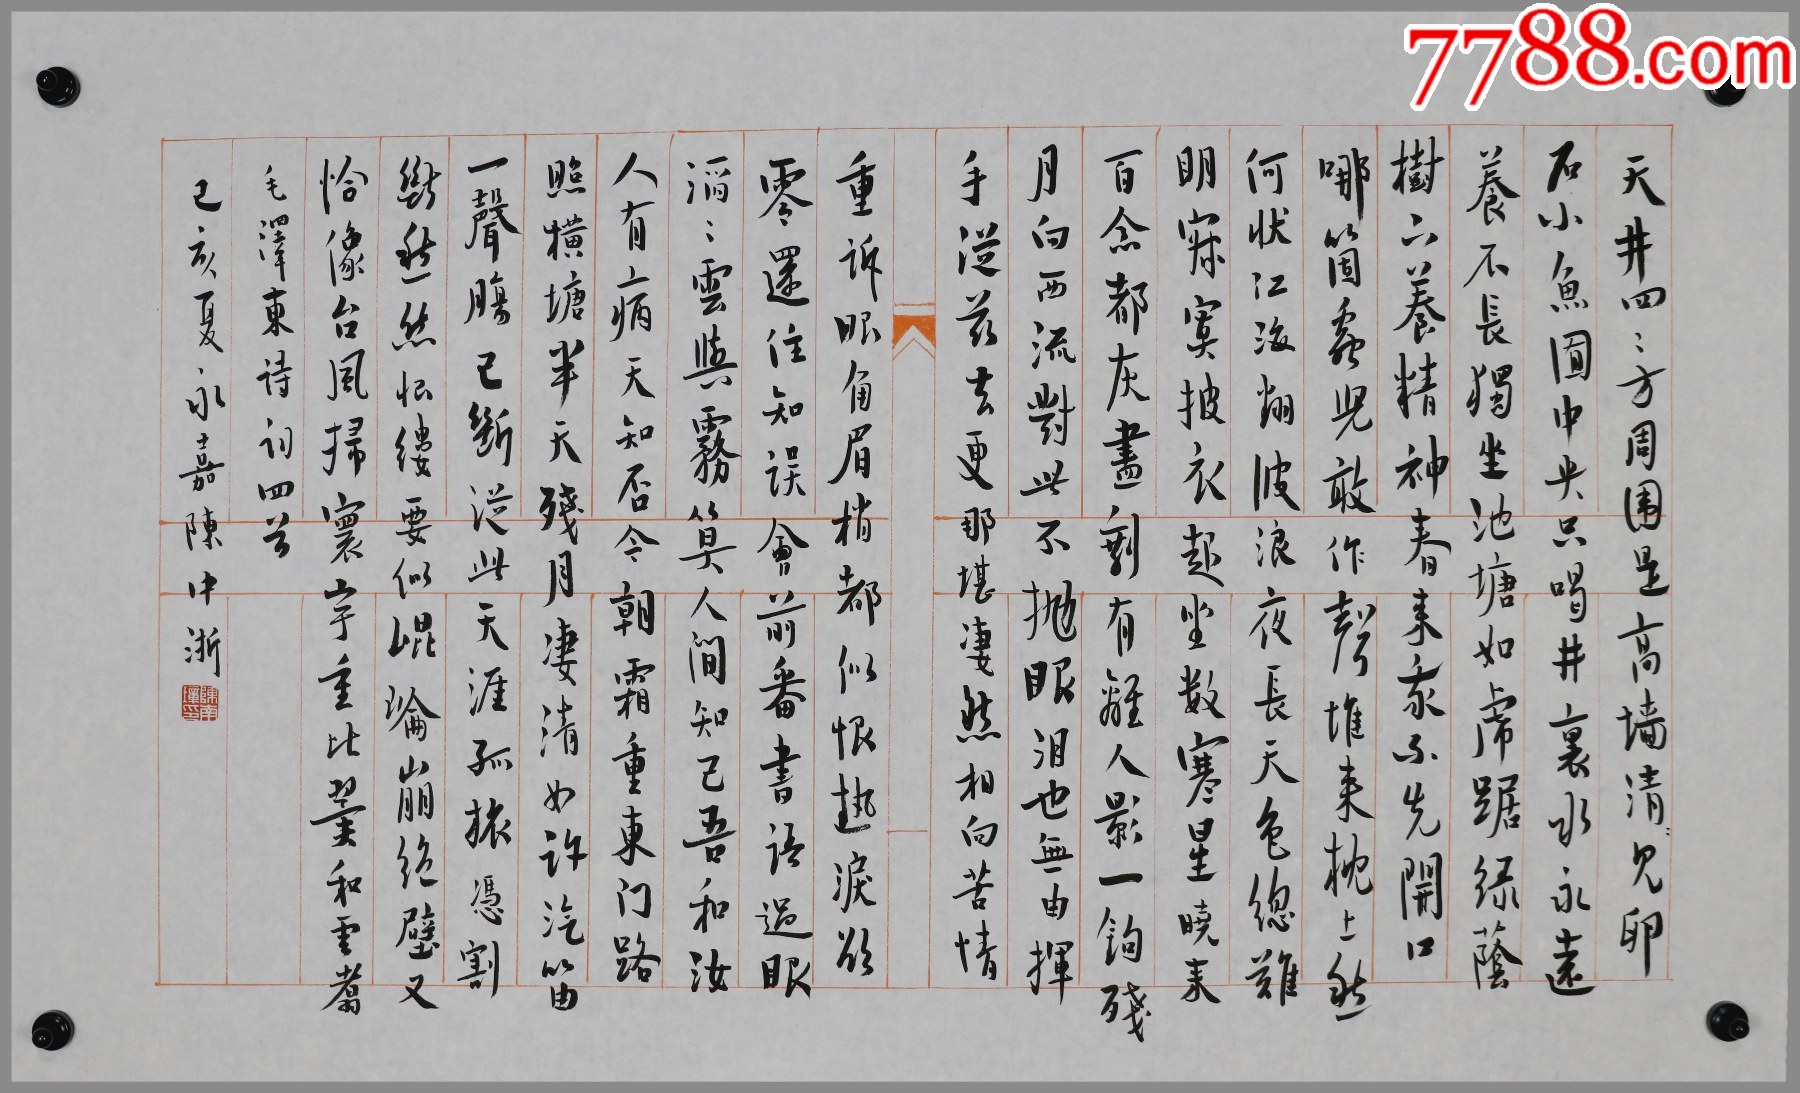 天井四〻方周围是高墙清〻见卵
石小魚囿中央只喝井裏水永遠
養不長獨坐池塘如虎踞绿蔭
樹下養精神春来我不先開口
哪箇蟲児敢作聲堆来枕上愁
何状江海翻波浪夜長天色總難
明寂寞披衣起坐数寒星曉来
百念都灰盡剩有離人影一鉤殘
月向西流對此不抛眼泪也無由揮
手從兹去更那堪凄然相向苦情
重訴眼角眉梢都似恨熱淚欲
零還住知誤會前番書語過眼
滔〻雲與霧算人間知己吾和汝
人有病天知否今朝霜重東门路
照横塘半天殘月凄清如許汽笛
一聲腸已斷從此天涯孤旅憑割
斷愁丝恨缕要似崐崘崩绝壁又
恰像台風掃寰宇重比翼和雲翥
毛澤東詩词四首
己亥夏永嘉陳中浙
7788.com